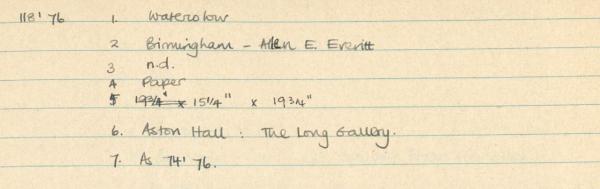 118'76 1. Watercolour
2 Birmingham - Allen E. Everitt
3 n.d.
4 Paper
5 19 3/4" x 15 1/4" x 19 3/4"
6. Aston Hall : The Long Gallery.
7. As 74'76.